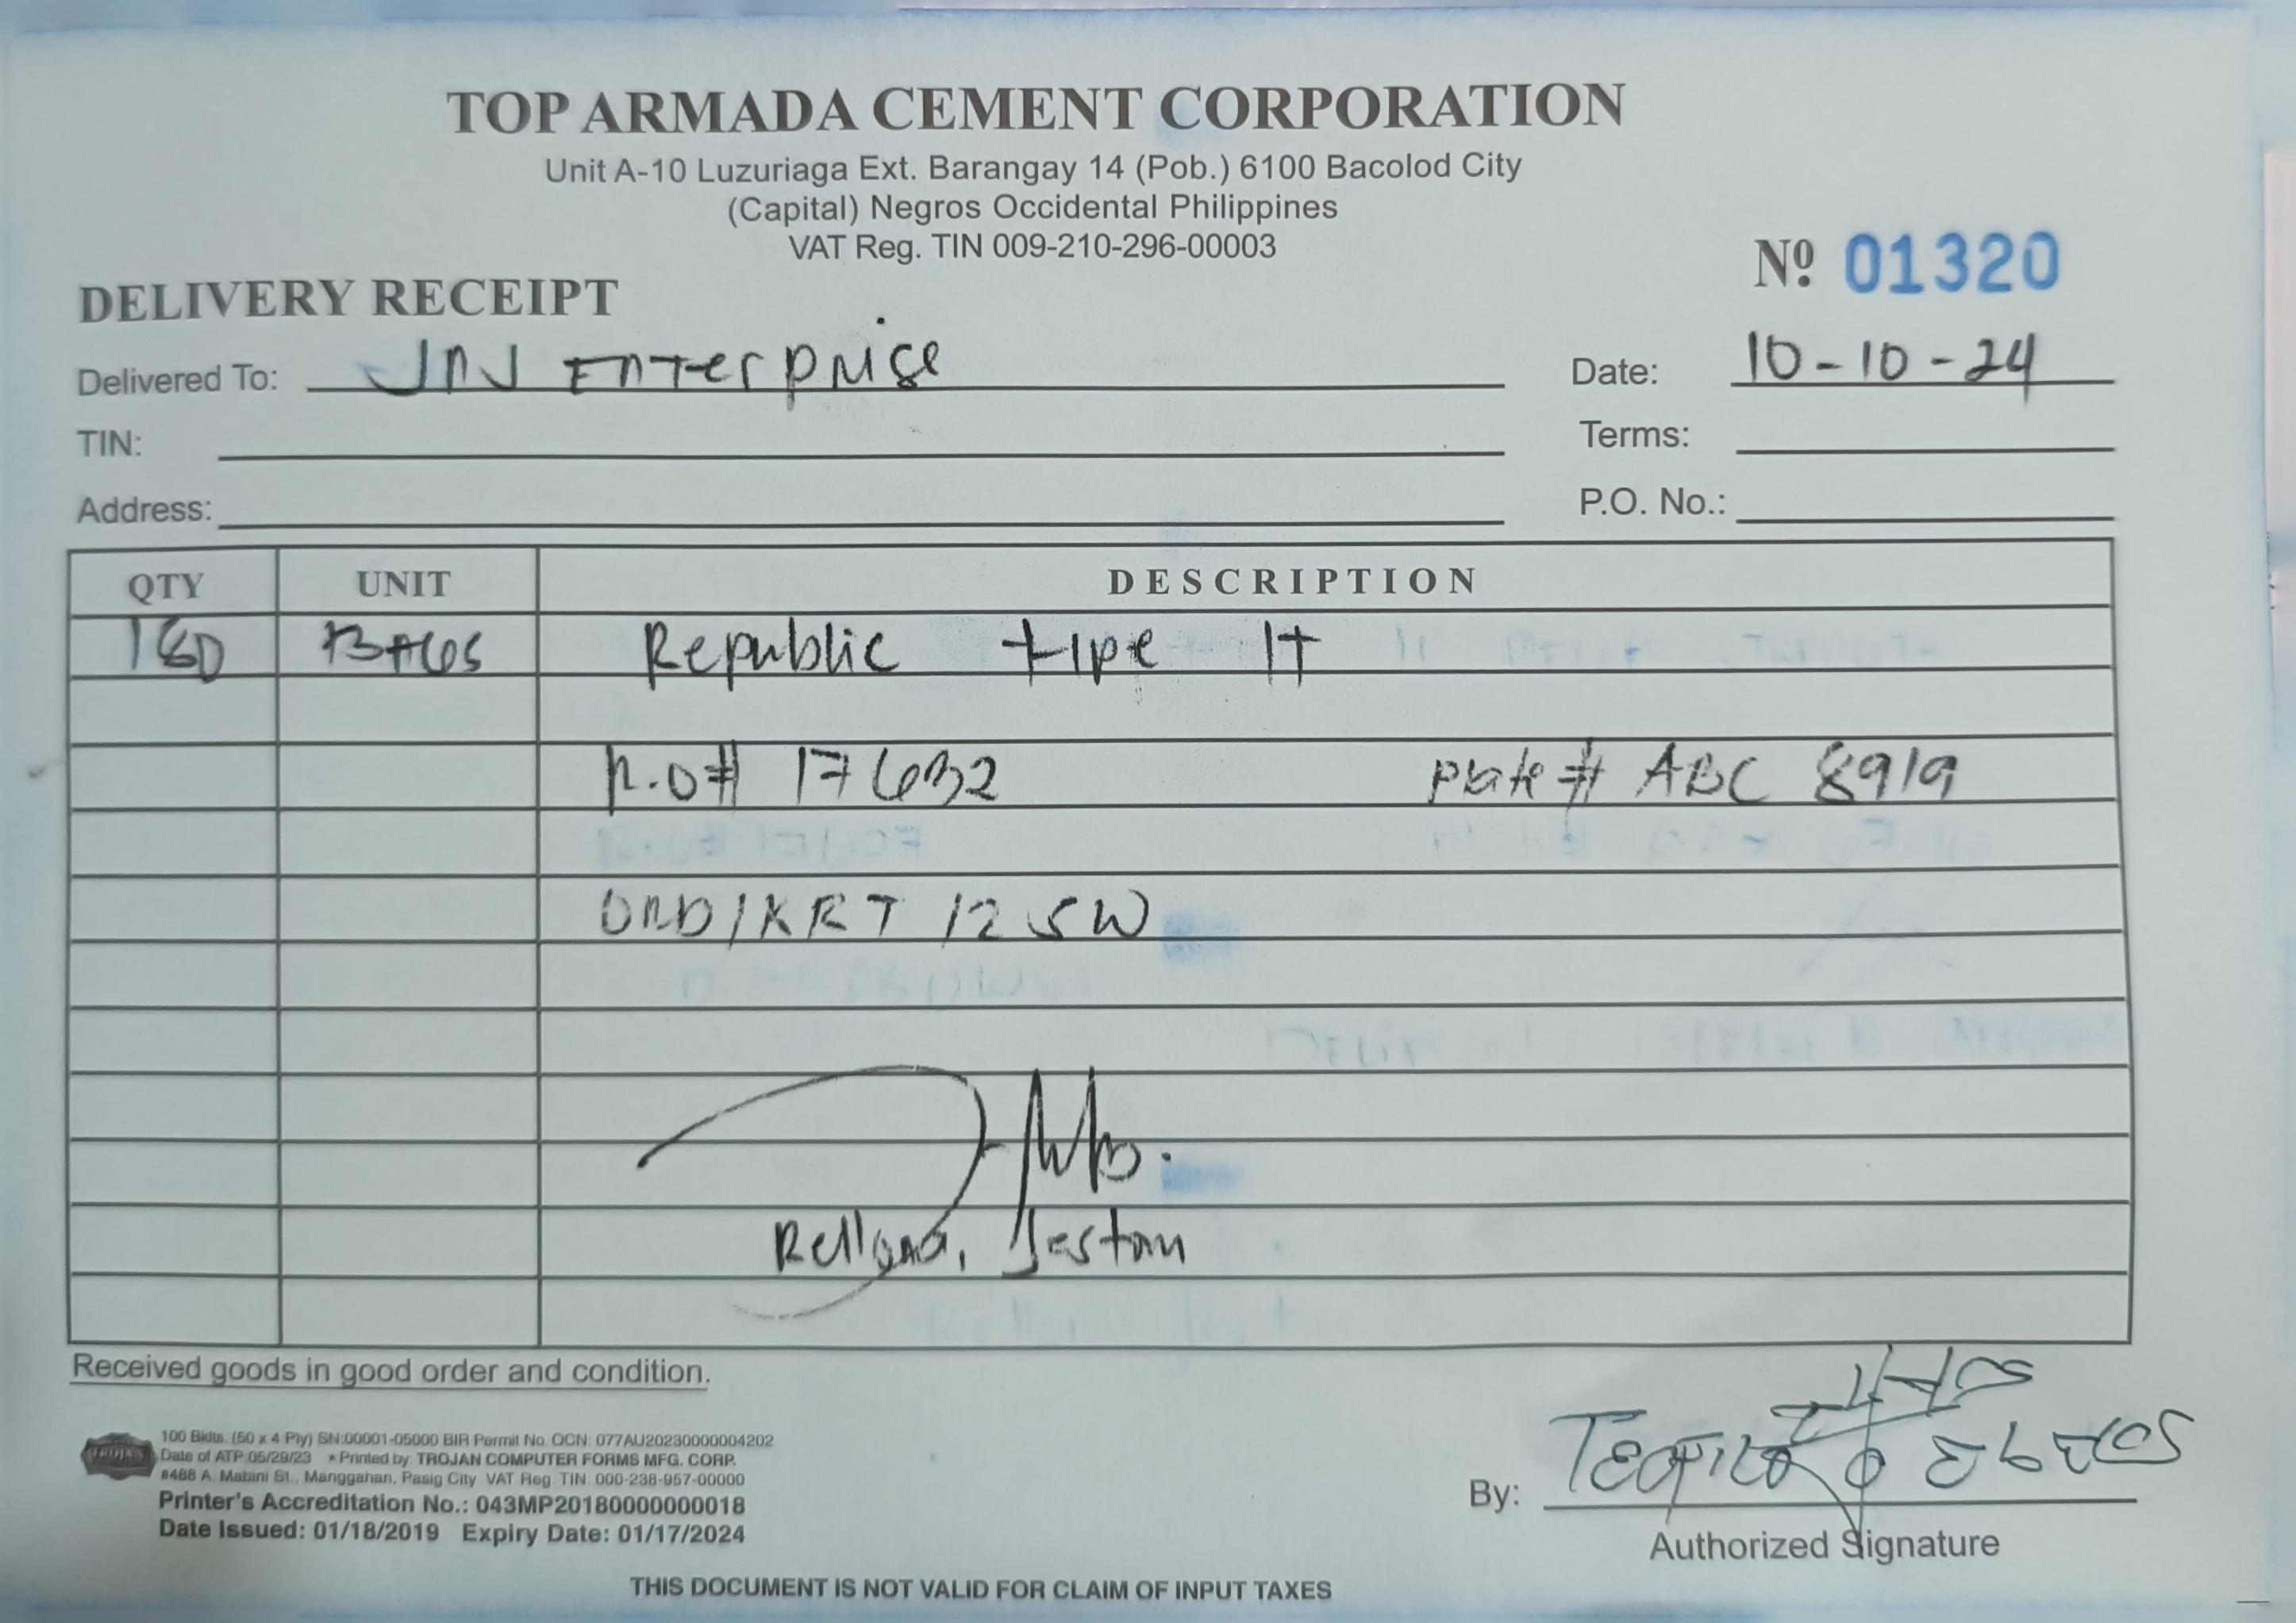 TOP ARMADA CEMENT CORPORATION
Unit A-10 Luzuriaga Ext. Barangay 14 (Pob.) 6100 Bacolod City
(Capital) Negros Occidental Philippines
VAT Reg. TIN 009-210-296-00003
Nº 01320
DELIVERY RECEIPT
Delivered To: JNJ Enterprise Date: 10-10-24
TIN: Terms:
Address: P.O. No.:
QTY UNIT DESCRIPTION
BAGS Republic type 1T
# 17632 plate # ABC 8919
/KRT 125W
Jestom
Received goods in good order and condition.
100 Bklts. (50 x 4 Ply) SN:00001-05000 BIR Permit No. OCN: 077AU20230000004202
Date of ATP:05/29/23 * Printed by: TROJAN COMPUTER FORMS MFG. CORP.
#488 A. Mabini St., Manggahan, Pasig City VAT Reg. TIN: 000-238-957-00000
Printer's Accreditation No.: 043MP20180000000018
Date Issued: 01/18/2019 Expiry Date: 01/17/2024
By:
Authorized Signature
THIS DOCUMENT IS NOT VALID FOR CLAIM OF INPUT TAXES